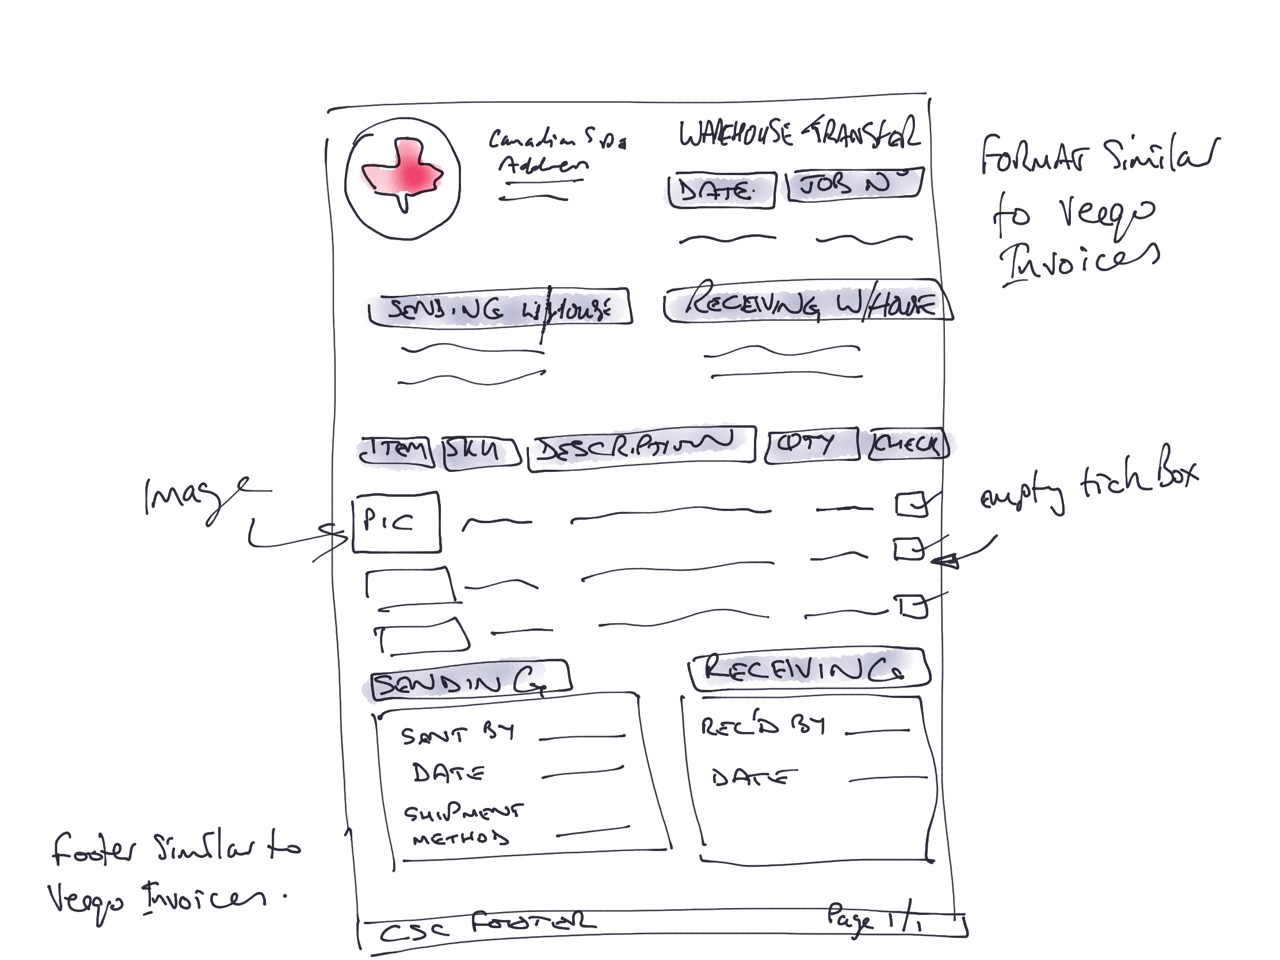 Canadian Spa
Address
WAREHOUSE TRANSFER
DATE.
JOB Nº
FORMAT Similar
to Veeqo
Invoices
SENDING W/HOUSE
RECEIVING W/HOUSE
ITEM SKU DESCRIPTION QTY CHECK
Image
PIC
empty tick Box
SENDING
RECEIVING
SENT BY
DATE
SHIPMENT
METHOD
REC'D BY
DATE
Footer Similar to
Veeqo Invoices.
CSC FOOTER
Page 1/1